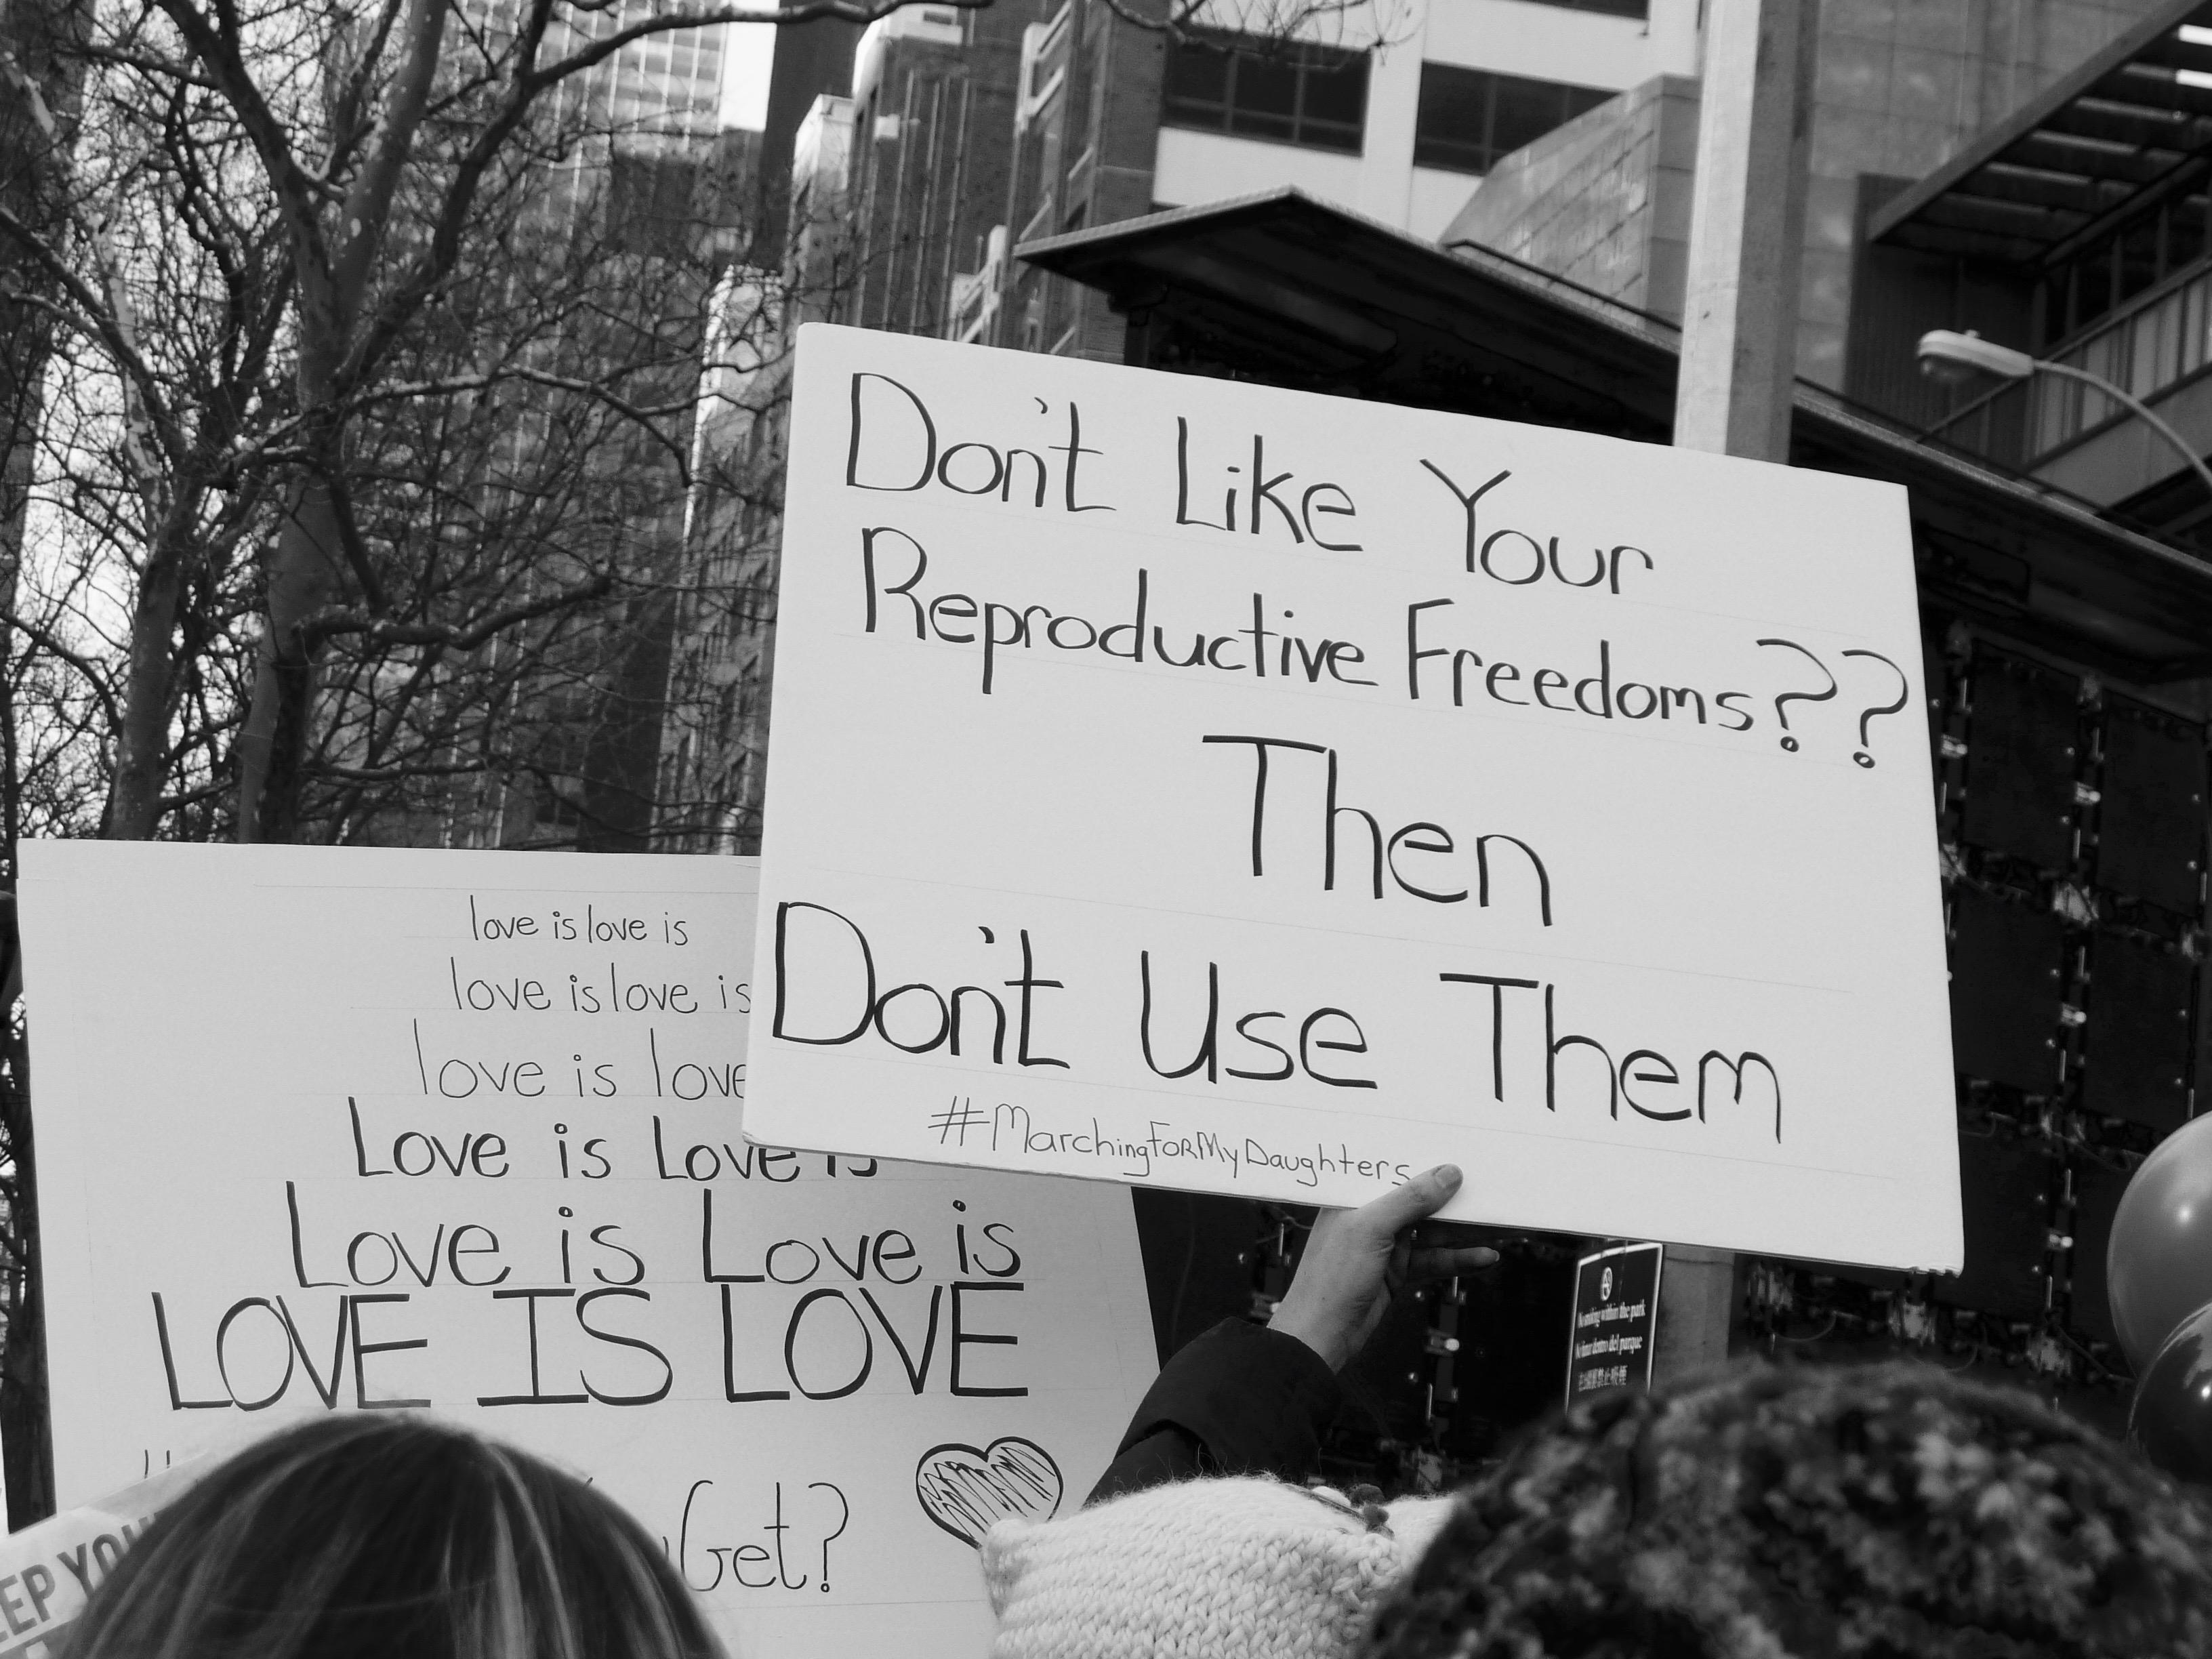 Don't Like Your
Reproductive Freedoms??
Then
Don't Use Them
#MarchingFORMyDaughters
love is love is
love is love is
love is love
Love is Love is
Love is Love is
LOVE IS LOVE
Get?
No smoking within the park
No fumar dentro del parque